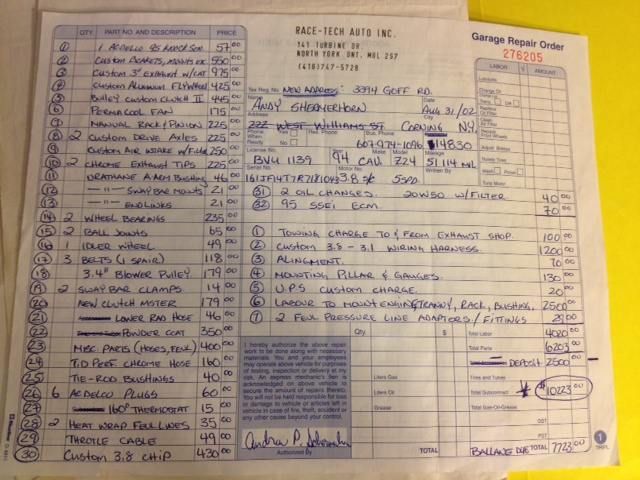 QTY. PART NO AND DESCRIPTION PRICE
① 1 ACDELCO 95 KNOCK SEN. 57 00
② CUSTOM BRKETS, MOUNTS ETC 550 00
③ CUSTOM 3" EXHAUST W/CAT 975 00
④ CUSTOM ALUMINUM FLYWHEEL 425 00
⑤ PULLEY CUSTOM CLUTCH II 445 00
⑥ PERMACOOL FAN 175 00
⑦ MANUAL RACK & PINION 225 00
⑧ 2 CUSTOM DRIVE AXLES 225 00
⑨ CUSTOM AIR INTAKE W/FILTER 250 00
⑩ 2 CHROME EXHAUST TIPS 225 00
⑪ URETHANE A ARM BUSHING 46 00
⑫ — " — SWAYBAR MOUNTS 21 00
⑬ — " — ENDLINKS 21 00
⑭ 2 WHEEL BEARINGS 235 00
⑮ 2 BALL JOINTS 65 00
⑯ 1 IDLER WHEEL 49 00
⑰ 3 BELTS (1 SPAIR) 118 00
⑱ 3.4" BLOWER PULLEY 179 00
⑲ 2 SWAYBAR CLAMPS 14 00
⑳ NEW CLUTCH MSTER 179 00
㉑ LOWER RAD HOSE 46 00
㉒ POWDER COAT 350 00
㉓ MISC PARTS (HOSES, FEUL) 400 00
㉔ T.D PERF. CHROME HOSE 160 00
㉕ TIE-ROD BUSHINGS 40 00
㉖ 6 ACDELCO PLUGS 60 00
㉗ 160° THERMOSTAT 15 00
㉘ 2 HEAT WRAP FEUL LINES 35 00
㉙ THROTLE CABLE 49 00
㉚ CUSTOM 3.8 CHIP 430 00
RACE-TECH AUTO INC.
141 TURBINE DR.
NORTH YORK ONT. M6L 2S7
(416)747-5728
Garage Repair Order
276205
LABOR AMOUNT
NEW ADDRESS: 3394 GOFF RD.
Name ANDY SHERMERHORN Date AUG 31/02
Address 222 WEST WILLIAMS ST CORNING N.Y.
Phone When Ready Yes No Res. Phone Bus. Phone 607-974-1096 14830
License No. BVU 1139 Year 94 Make CAV. Model Z24 Mileage 51114 MIL
3.8 S/C 5SPD Written By
㉛ 2 OIL CHANGES. 20W50 W/FILTER 40 00
㉜ 95 SSEI ECM. 70 00
① TOWING CHARGE TO & FROM EXHAUST SHOP. 100 00
② CUSTOM 3.8 - 3.1 WIRING HARNESS. 1200 00
③ ALINGMENT. 70 00
④ MOUNTING PILLAR & GAUGES. 130 00
⑤ U.P.S CUSTOM CHARGE. 20 00
⑥ LABOUR TO MOUNT ENGINE, TRANNY, RACK, BUSHING. 2500 00
⑦ 2 FEUL PRESSURE LINE ADAPTORS / FITTINGS
I hereby authorize the above repair work to be done along with necessary materials. You and your employees may operate above vehicle for purposes of testing, inspection or delivery at my risk. An express mechanic's lien is acknowledged on above vehicle to secure the amount of repairs thereto. You will not be held responsible for loss or damage to vehicle or articles left in vehicle in case of fire, theft, accident or any other cause beyond your control.
Authorized By
Qty $
Liters Gas
Liters Oil
Grease
TOTAL
Total Labor 4020 00
Total Parts 6203 00
DEPOSIT 2500
Tires and Tubes
Total Subcontract $ 10223 00
Total Gas-Oil-Grease
GST
PST
BALLANCE DUE TOTAL 7723 00
1